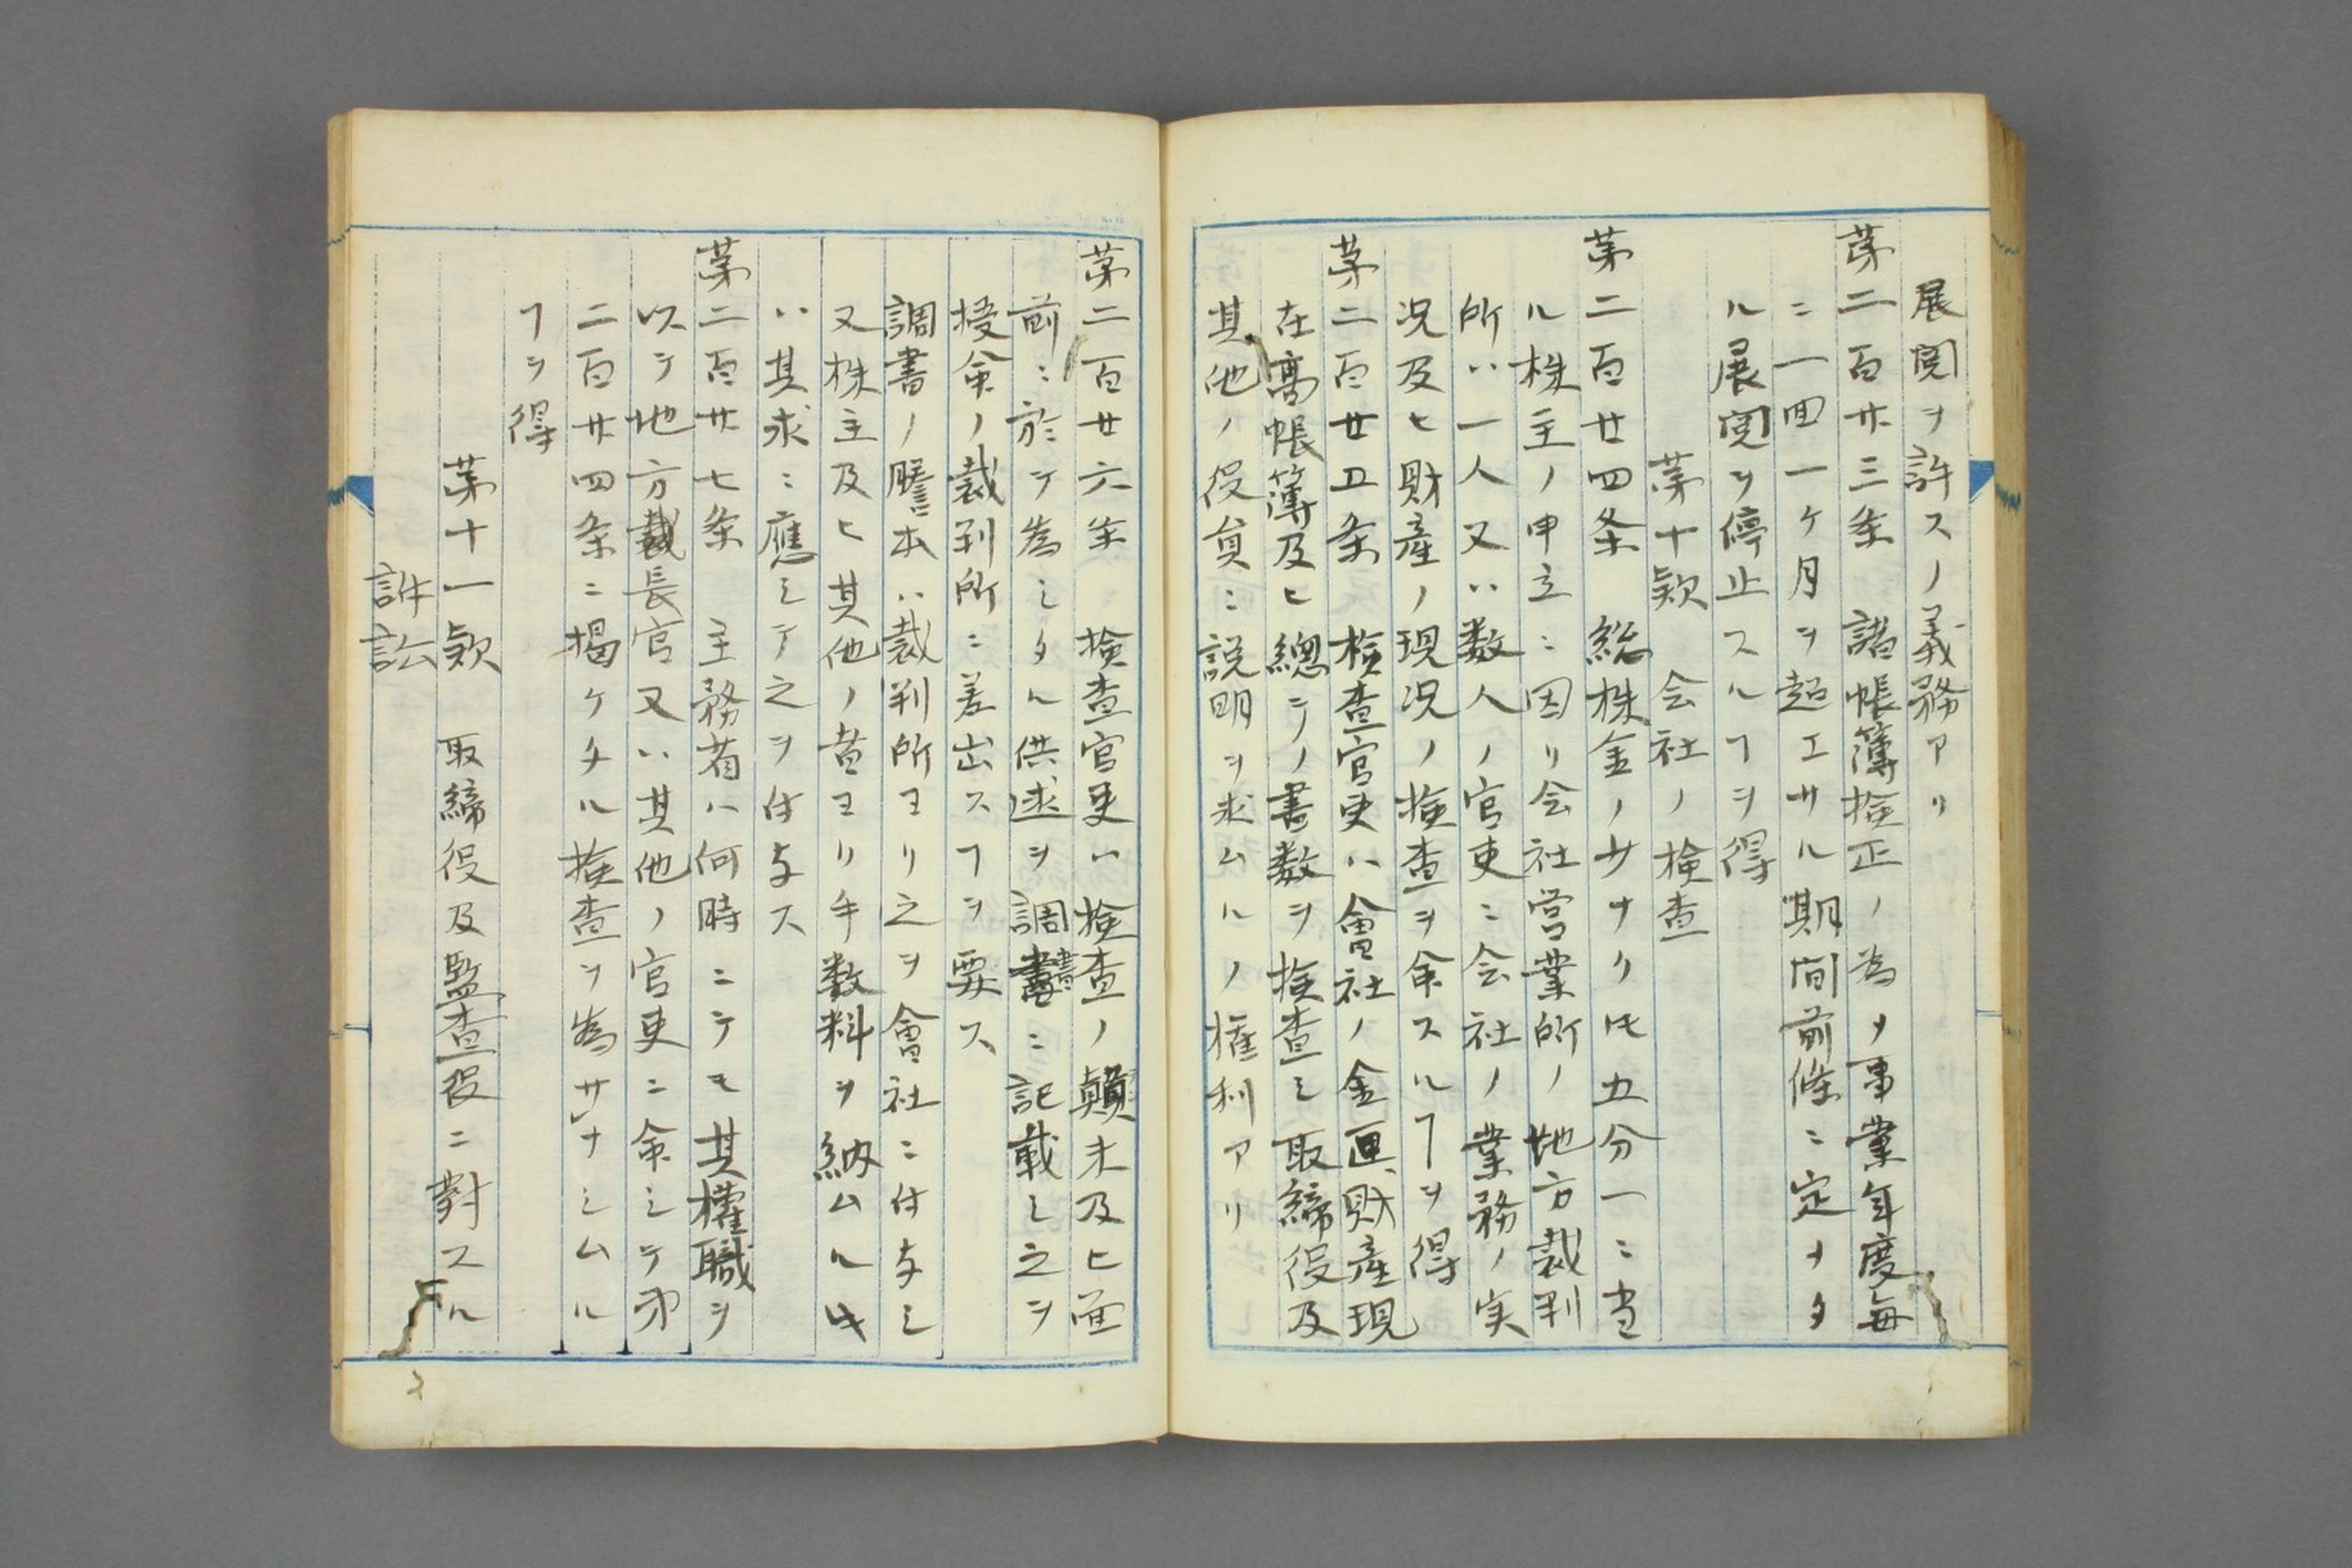 展閲ヲ許スノ義務アリ
第二百廿三条　諸帳簿検正ノ為メ事業年度毎
ニ一回一ケ月ヲ超エサル期間前條ニ定メタ
ル展閲ヲ停止スルヿヲ得
第十款　会社ノ検査
第二百廿四条　総株金ノ少ナクトモ五分一ニ当
ル株主ノ申立ニ因リ会社営業所ノ地方裁判
所ハ一人又ハ数人ノ官吏ニ会社ノ業務ノ実
况及ヒ財産ノ現况ノ検査ヲ命スルヿヲ得
第二百廿五条　検査官吏ハ會社ノ金匣、財産現
在高帳簿及ヒ總テノ書数ヲ検査シ取締役及
其他ノ役員ニ説明ヲ求ムルノ権利アリ
第二百廿六条　検査官吏ハ検査ノ顛末及ヒ面
前ニ於テ為シタル供述ヲ調書ニ記載シ之ヲ
授命ノ裁判所ニ差出スヿヲ要ス
調書ノ謄本ハ裁判所ヨリ之ヲ會社ニ付与シ
又株主及ヒ其他ノ者ヨリ手数料ヲ納ムル時
ハ其求ニ應シテ之ヲ付与ス
第二百廿七条　主務省ハ何時ニテモ其權職ヲ
以テ地方裁長官又ハ其他ノ官吏ニ命シテ第
二百廿四条ニ掲ケタル検査ヲ為サナシムル
ヿヲ得
第十一款　取締役及監査役ニ對スル
訴訟